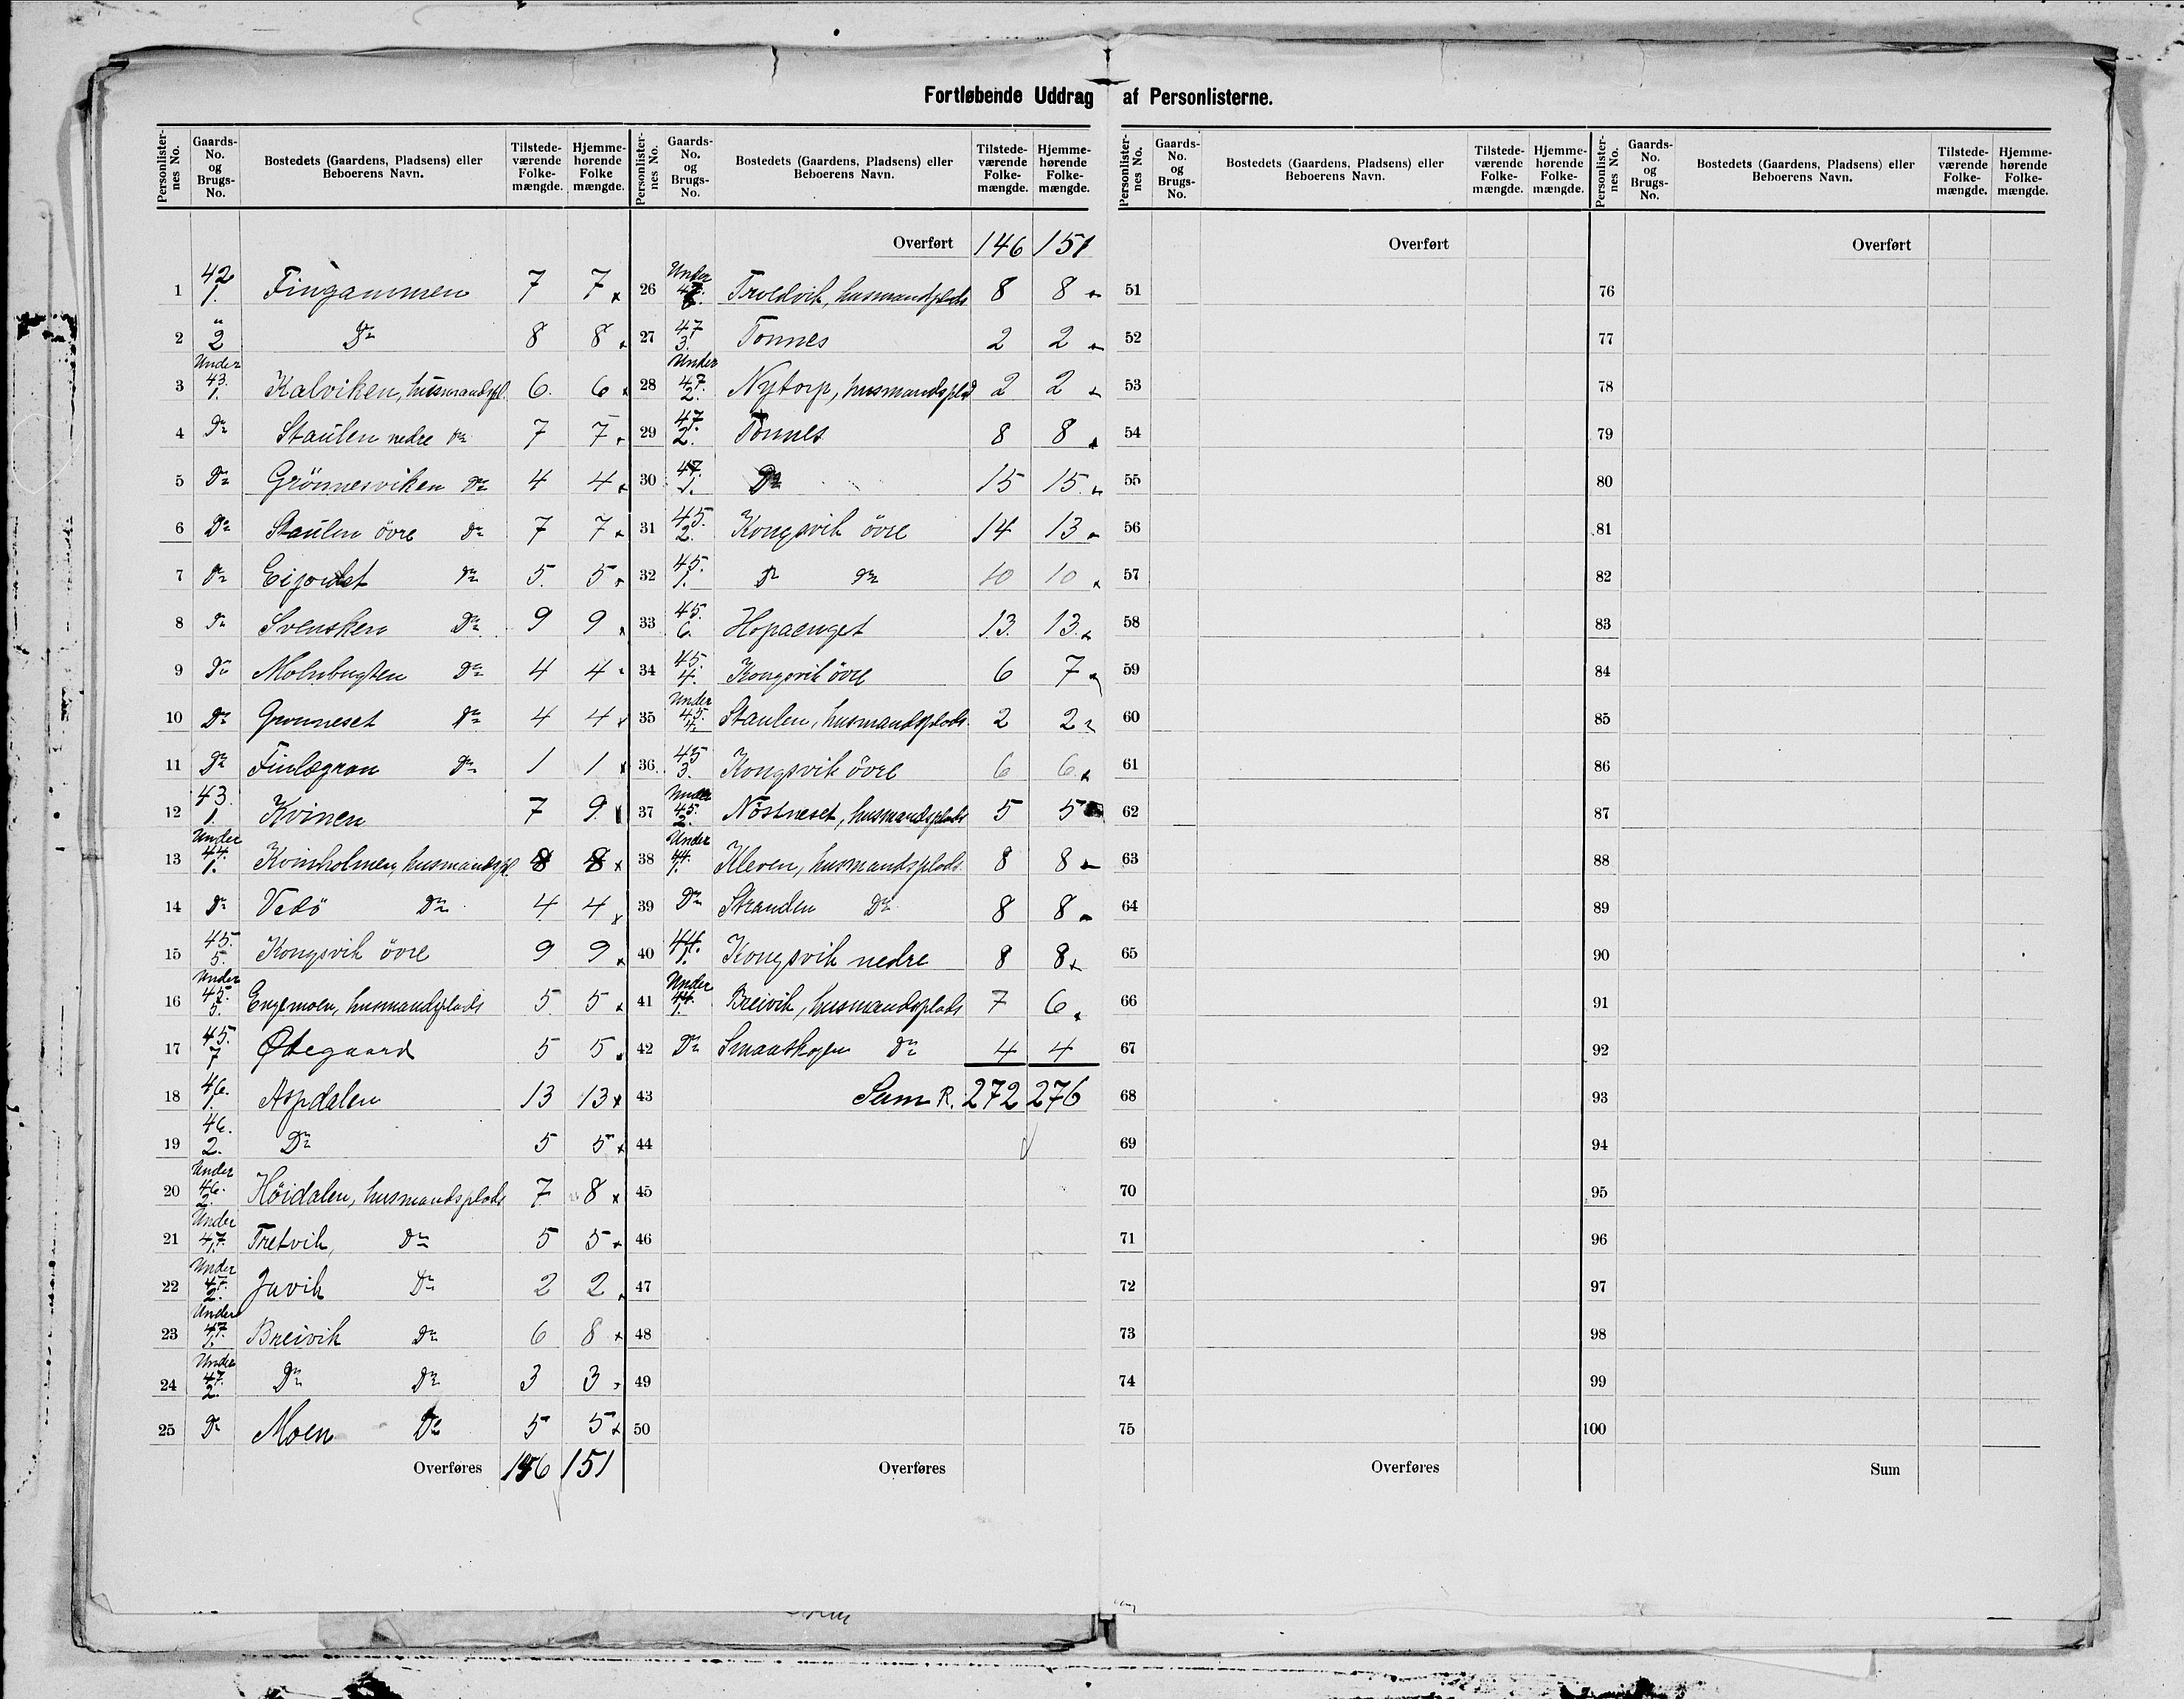 Fortløbende Uddrag af Personlisterne.
Personlisternes No. | Gaards-No. og Brugs-No. | Bostedets (Gaardens, Pladsens) eller Beboerens Navn. | Tilstedeværende Folkemængde. | Hjemmehørende Folkemængde.
1 42/1. Fingammen 7 7
2 " 2 Do 8 8
3 Under 43./1. Kalviken, husmandspl. 6. 6
4 Do Staulen nedre Do 7 7
5 Do Grönnesviken Do 4 4
6 Do Staulen övre Do 7 7
7 Do Eijordet Do 5. 5
8 Do Svensken Do 9 9
9 Do Molnbugten Do 4 4
10 Do Grunneset Do 4 4
11 Do Finlægran Do 1 1
12 43./1. Kvinen 7 9
13 Under 44./1. Kvinholmen, husmandspl. 8 8
14 Do Vedö Do 4 4
15 45./5. Kongsvik övre 9 9
16 Under 45./5. Engemoen, husmandsplads 5 5
17 45./7 Ødegaard 5 5
18 46./1. Aspdalen 13 13
19 46./2. Do 5 5
20 Under 46./2. Höidalen, husmandsplads 7 8
21 Under 47./1. Tretvik, Do 5 5
22 Under 47./2. Javik Do 2 2
23 Under 47./1. Breivik Do 6 8
24 Under 47./2. Do Do 3 3
25 Do Moen Do 5 5
Overføres 146 151
Overført 146 151
26 Under 47. Troldvik, husmandsplads 8 8
27 47/3. Tonnes 2 2
28 Under 47./2. Nytorp, husmandsplad 2 2
29 47./2. Tonnes 8 8
30 47./1. Do 15 15
31 45./2. Kongsvik övre 14 13
32 45./1. Do Do 10 10
33 45./6. Hopaenget 13. 13.
34 45./4. Kongsvik övre 6 7
35 Under 45./4. Staulen, husmandsplads 2 2
36 45/3. Kongsvik övre 6 6
37 Under 45./2. Nöstneset, husmandsplads 5 5
38 Under 44./1. Kleven, husmandsplads 8 8
39 Do Stranden Do 8 8
40 44./1. Kongsvik nedre 8 8
41 Under 44./1. Breivik, husmandsplads 7 6
42 Do Smaaskogen Do 4 4
43 Sum R. 272 276
44
45
46
47
48
49
50
Overføres
Personlisternes No. | Gaards-No. og Brugs-No. | Bostedets (Gaardens, Pladsens) eller Beboerens Navn. | Tilstedeværende Folkemængde. | Hjemmehørende Folkemængde.
Overført
51
52
53
54
55
56
57
58
59
60
61
62
63
64
65
66
67
68
69
70
71
72
73
74
75
Overføres
Overført
76
77
78
79
80
81
82
83
84
85
86
87
88
89
90
91
92
93
94
95
96
97
98
99
100
Sum